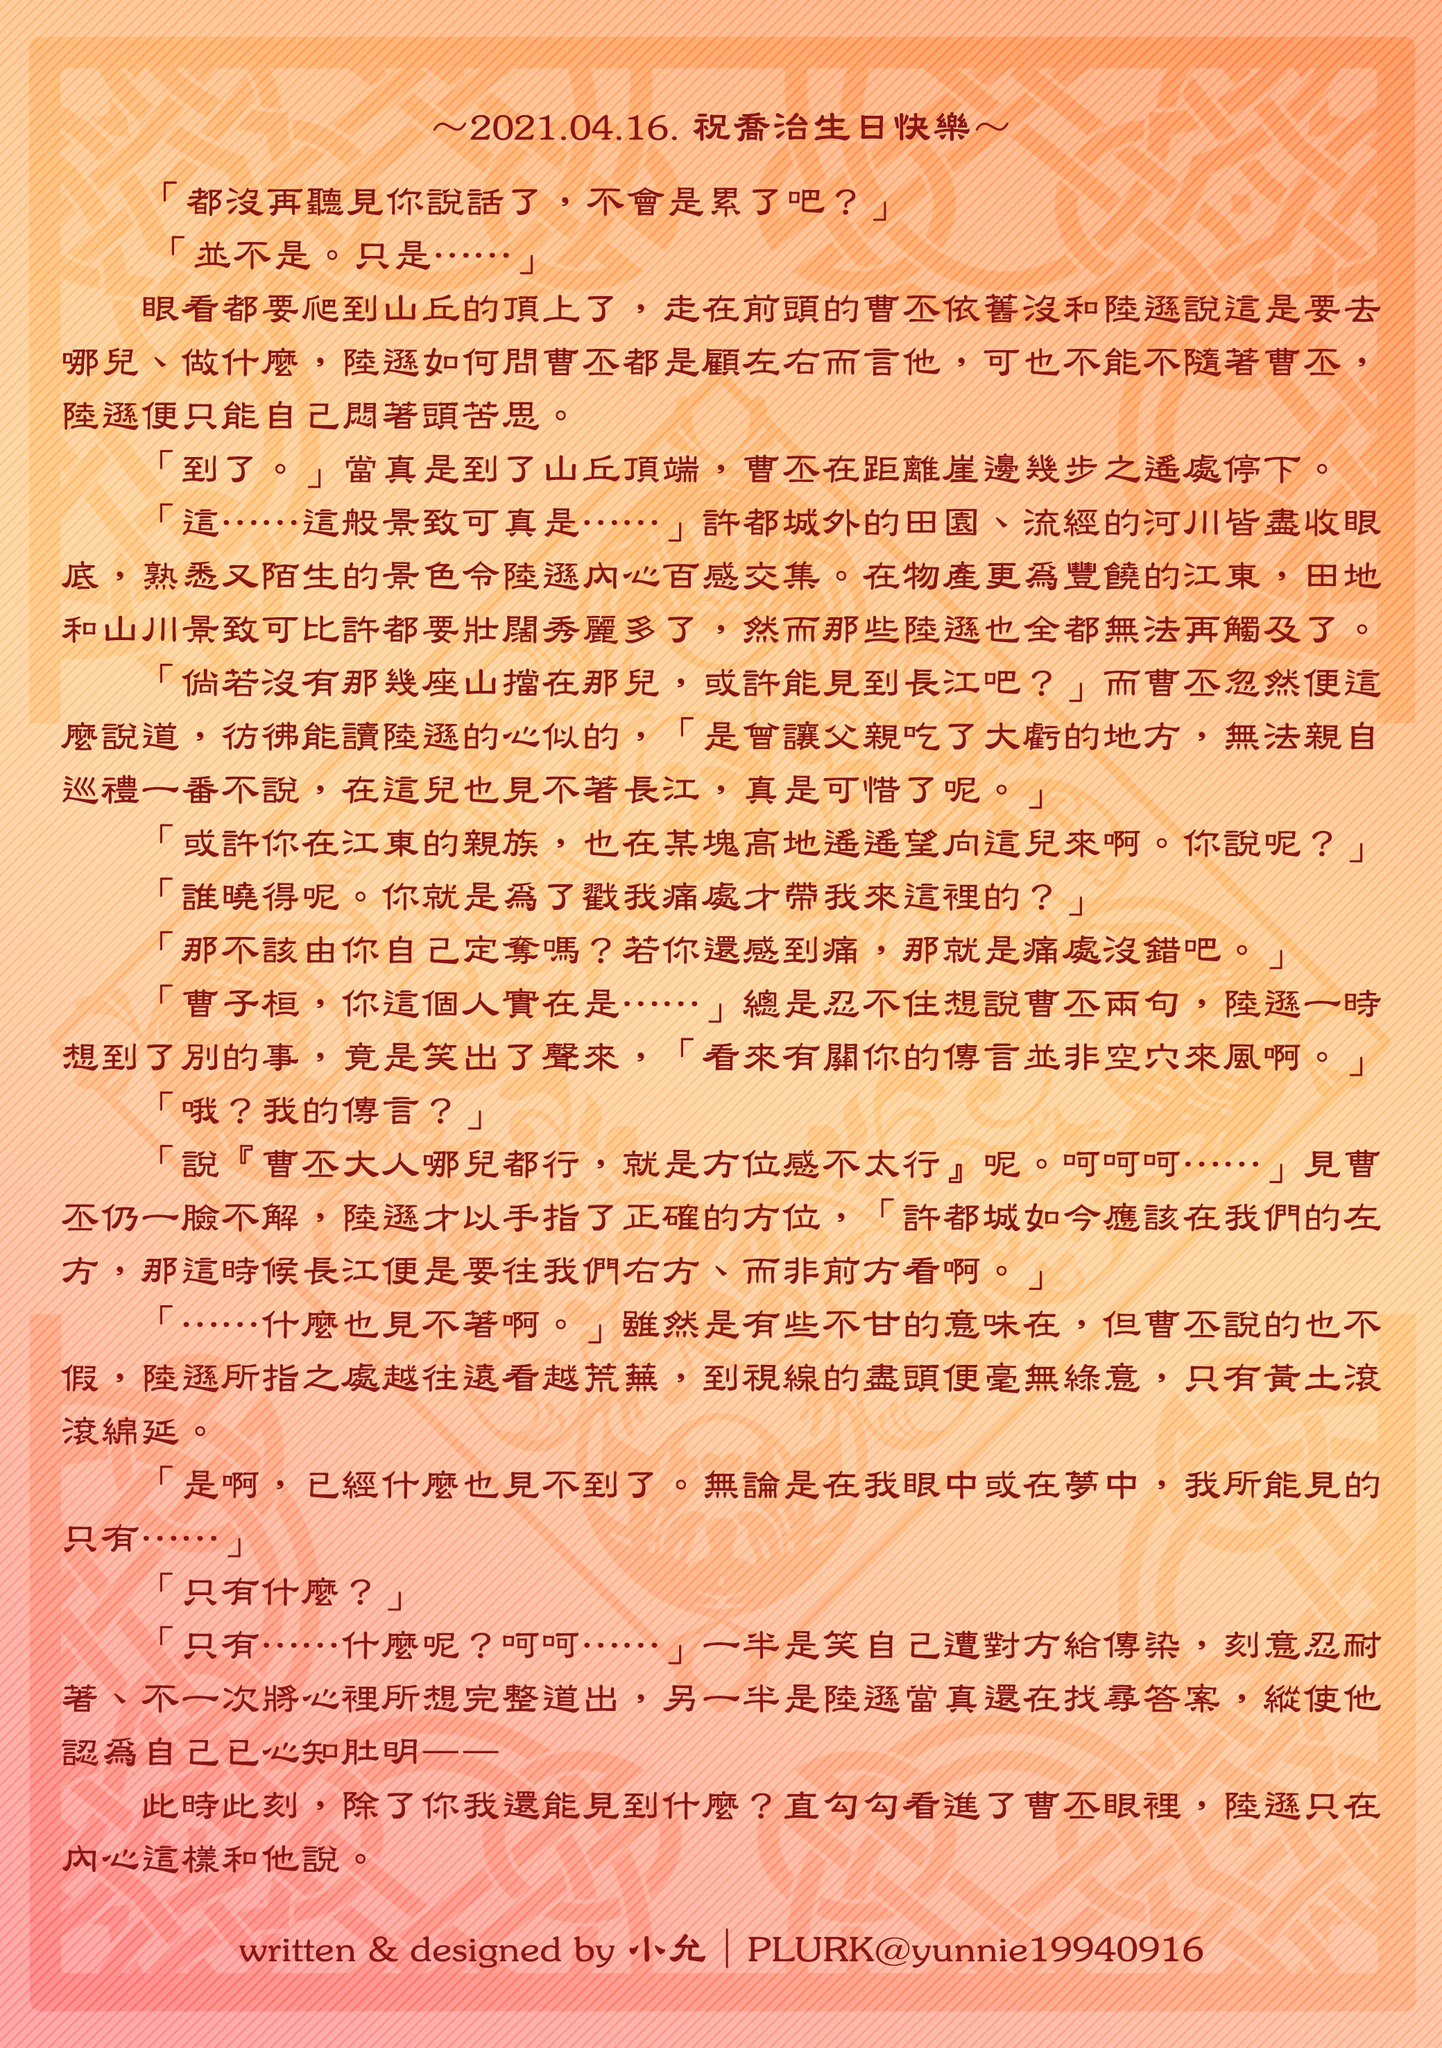 ～2021.04.16. 祝喬治生日快樂～
「都沒再聽見你說話了，不會是累了吧？」
「並不是。只是⋯⋯」
眼看都要爬到山丘的頂上了，走在前頭的曹丕依舊沒和陸遜說這是要去
哪兒、做什麼，陸遜如何問曹丕都是顧左右而言他，可也不能不隨著曹丕，
陸遜便只能自己悶著頭苦思。
「到了。」當真是到了山丘頂端，曹丕在距離崖邊幾步之遙處停下。
「這⋯⋯這般景致可真是⋯⋯」許都城外的田園、流經的河川皆盡收眼
底，熟悉又陌生的景色令陸遜內心百感交集。在物產更為豐饒的江東，田地
和山川景致可比許都要壯闊秀麗多了，然而那些陸遜也全都無法再觸及了。
「倘若沒有那幾座山擋在那兒，或許能見到長江吧？」而曹丕忽然便這
麼說道，彷彿能讀陸遜的心似的，「是曾讓父親吃了大虧的地方，無法親自
巡禮一番不說，在這兒也見不著長江，真是可惜了呢。」
「或許你在江東的親族，也在某塊高地遙遙望向這兒來啊。你說呢？」
「誰曉得呢。你就是為了戳我痛處才帶我來這裡的？」
「那不該由你自己定奪嗎？若你還感到痛，那就是痛處沒錯吧。」
「曹子桓，你這個人實在是⋯⋯」總是忍不住想說曹丕兩句，陸遜一時
想到了別的事，竟是笑出了聲來，「看來有關你的傳言並非空穴來風啊。」
「哦？我的傳言？」
「說『曹丕大人哪兒都行，就是方位感不太行』呢。呵呵呵⋯⋯」見曹
丕仍一臉不解，陸遜才以手指了正確的方位，「許都城如今應該在我們的左
方，那這時候長江便是要往我們右方、而非前方看啊。」
「⋯⋯什麼也見不著啊。」雖然是有些不甘的意味在，但曹丕說的也不
假，陸遜所指之處越往遠看越荒蕪，到視線的盡頭便毫無綠意，只有黃土滾
滾綿延。
「是啊，已經什麼也見不到了。無論是在我眼中或在夢中，我所能見的
只有⋯⋯」
「只有什麼？」
「只有⋯⋯什麼呢？呵呵⋯⋯」一半是笑自己遭對方給傳染，刻意忍耐
著、不一次將心裡所想完整道出，另一半是陸遜當真還在找尋答案，縱使他
認為自己已心知肚明——
此時此刻，除了你我還能見到什麼？直勾勾看進了曹丕眼裡，陸遜只在
內心這樣和他說。
written & designed by 小允｜PLURK@yunnie19940916